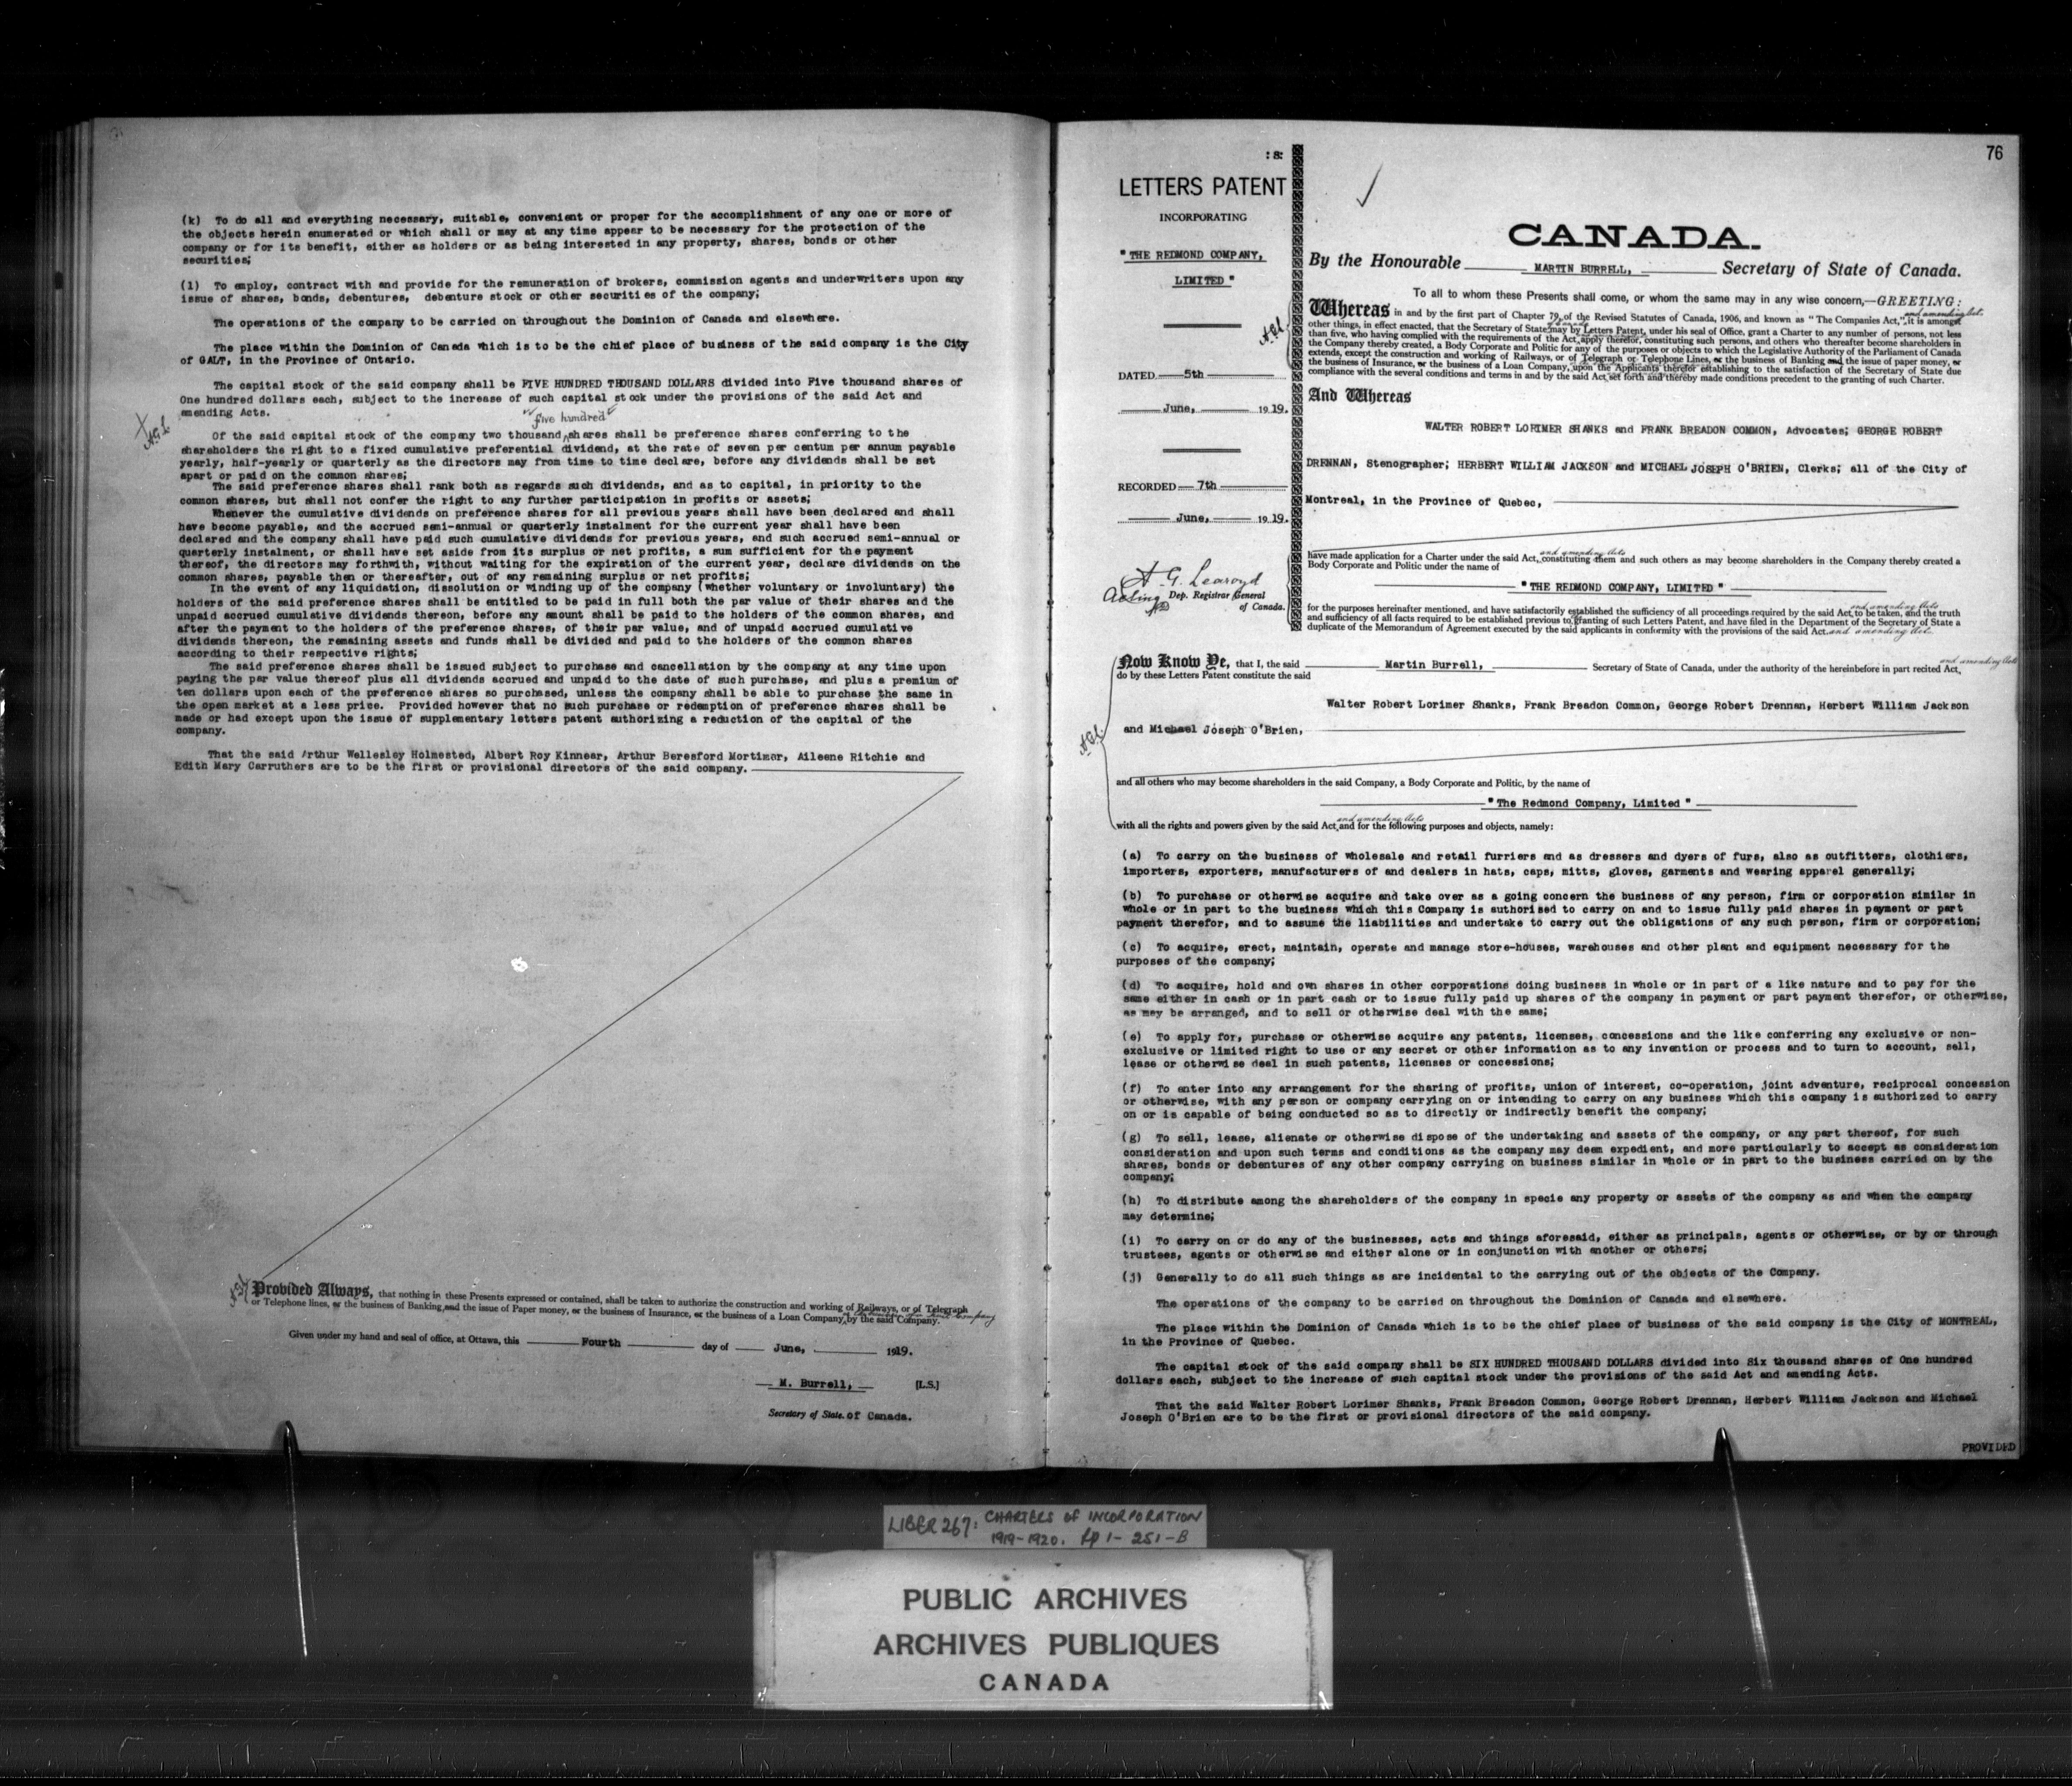 (k) To do all and everything necessary, suitable, convenient or proper for the accomplishment of any one or more of
the objects herein enumerated or which shall or may at any time appear to be necessary for the protection of the
company or for its benefit, either as holders or as being interested in any property, shares, bonds or other
securities;
(l) To employ, contract with and provide for the remuneration of brokers, commission agents and underwriters upon any
issue of shares, bonds, debentures, debenture stock or other securities of the company;
The operations of the company to be carried on throughout the Dominion of Canada and elsewhere.
The place within the Dominion of Canada which is to be the chief place of business of the said company is the City
of GALT, in the Province of Ontario.
The capital stock of the said company shall be FIVE HUNDRED THOUSAND DOLLARS divided into Five thousand shares of
One hundred dollars each, subject to the increase of such capital stock under the provisions of the said Act and
amending Acts.
five hundred
A.G.L.
Of the said capital stock of the company two thousand shares shall be preference shares conferring to the
shareholders the right to a fixed cumulative preferential dividend, at the rate of seven per centum per annum payable
yearly, half-yearly or quarterly as the directors may from time to time declare, before any dividends shall be set
apart or paid on the common shares;
The said preference shares shall rank both as regards such dividends, and as to capital, in priority to the
common shares, but shall not confer the right to any further participation in profits or assets;
Whenever the cumulative dividends on preference shares for all previous years shall have been declared and shall
have become payable, and the accrued semi-annual or quarterly instalment for the current year shall have been
declared and the company shall have paid such cumulative dividends for previous years, and such accrued semi-annual or
quarterly instalment, or shall have set aside from its surplus or net profits, a sum sufficient for the payment
thereof, the directors may forthwith, without waiting for the expiration of the current year, declare dividends on the
common shares, payable then or thereafter, out of any remaining surplus or net profits;
In the event of any liquidation, dissolution or winding up of the company (whether voluntary or involuntary) the
holders of the said preference shares shall be entitled to be paid in full both the par value of their shares and the
unpaid accrued cumulative dividends thereon, before any amount shall be paid to the holders of the common shares, and
after the payment to the holders of the preference shares, of their par value, and of unpaid accrued cumulative
dividends thereon, the remaining assets and funds shall be divided and paid to the holders of the common shares
according to their respective rights;
The said preference shares shall be issued subject to purchase and cancellation by the company at any time upon
paying the par value thereof plus all dividends accrued and unpaid to the date of such purchase, and plus a premium of
ten dollars upon each of the preference shares so purchased, unless the company shall be able to purchase the same in
the open market at a less price. Provided however that no such purchase or redemption of preference shares shall be
made or had except upon the issue of supplementary letters patent authorizing a reduction of the capital of the
company.
That the said Arthur Wellesley Holmested, Albert Roy Kinnear, Arthur Beresford Mortimer, Aileene Ritchie and
Edith Mary Carruthers are to be the first or provisional directors of the said company.
Provided Always, that nothing in these Presents expressed or contained, shall be taken to authorize the construction and working of Railways, or of Telegraph
or Telephone lines, or the business of Banking and the issue of Paper money, or the business of Insurance, or the business of a Loan Company, by the said Company.
Given under my hand and seal of office, at Ottawa, this Fourth day of June, 1919.
M. Burrell, [L.S.]
Secretary of State of Canada.
76
: 8:
LETTERS PATENT
INCORPORATING
"THE REDMOND COMPANY,
LIMITED"
DATED 5th
June, 1919.
RECORDED 7th
June, 1919.
A. G. Learoyd
Acting Dep. Registrar General
of Canada.
CANADA.
By the Honourable MARTIN BURRELL, Secretary of State of Canada.
To all to whom these Presents shall come, or whom the same may in any wise concern,—GREETING:
and amending Act.
Whereas in and by the first part of Chapter 79, of the Revised Statutes of Canada, 1906, and known as "The Companies Act," it is amongst
other things, in effect enacted, that the Secretary of State may by Letters Patent, under his seal of Office, grant a Charter to any number of persons, not less
than five, who having complied with the requirements of the Act, apply therefor, constituting such persons, and others who thereafter become shareholders in
the Company thereby created, a Body Corporate and Politic for any of the purposes or objects to which the Legislative Authority of the Parliament of Canada
extends, except the construction and working of Railways, or of Telegraph or Telephone Lines, or the business of Banking and the issue of paper money, or
the business of Insurance, or the business of a Loan Company, upon the Applicants therefor establishing to the satisfaction of the Secretary of State due
compliance with the several conditions and terms in and by the said Act set forth and thereby made conditions precedent to the granting of such Charter.
A.G.L.
And Whereas
WALTER ROBERT LORIMER SHANKS and FRANK BREADON COMMON, Advocates; GEORGE ROBERT
DRENNAN, Stenographer; HERBERT WILLIAM JACKSON and MICHAEL JOSEPH O'BRIEN, Clerks; all of the City of
Montreal, in the Province of Quebec,
and amending Acts
have made application for a Charter under the said Act, constituting them and such others as may become shareholders in the Company thereby created a
Body Corporate and Politic under the name of
"THE REDMOND COMPANY, LIMITED"
and amending Acts
for the purposes hereinafter mentioned, and have satisfactorily established the sufficiency of all proceedings required by the said Act, to be taken, and the truth
and sufficiency of all facts required to be established previous to granting of such Letters Patent, and have filed in the Department of the Secretary of State a
duplicate of the Memorandum of Agreement executed by the said applicants in conformity with the provisions of the said Act. and amending Act.
and amending Acts
Now Know Ye, that I, the said Martin Burrell, Secretary of State of Canada, under the authority of the hereinbefore in part recited Act,
do by these Letters Patent constitute the said
Walter Robert Lorimer Shanks, Frank Breadon Common, George Robert Drennan, Herbert William Jackson
and Michael Joseph O'Brien,
A.G.L.
and all others who may become shareholders in the said Company, a Body Corporate and Politic, by the name of
"The Redmond Company, Limited"
and amending Acts
with all the rights and powers given by the said Act, and for the following purposes and objects, namely:
(a) To carry on the business of wholesale and retail furriers and as dressers and dyers of furs, also as outfitters, clothiers,
importers, exporters, manufacturers of and dealers in hats, caps, mitts, gloves, garments and wearing apparel generally;
(b) To purchase or otherwise acquire and take over as a going concern the business of any person, firm or corporation similar in
whole or in part to the business which this Company is authorised to carry on and to issue fully paid shares in payment or part
payment therefor, and to assume the liabilities and undertake to carry out the obligations of any such person, firm or corporation;
(c) To acquire, erect, maintain, operate and manage store-houses, warehouses and other plant and equipment necessary for the
purposes of the company;
(d) To acquire, hold and own shares in other corporations doing business in whole or in part of a like nature and to pay for the
same either in cash or in part cash or to issue fully paid up shares of the company in payment or part payment therefor, or otherwise,
as may be arranged, and to sell or otherwise deal with the same;
(e) To apply for, purchase or otherwise acquire any patents, licenses, concessions and the like conferring any exclusive or non-
exclusive or limited right to use or any secret or other information as to any invention or process and to turn to account, sell,
lease or otherwise deal in such patents, licenses or concessions;
(f) To enter into any arrangement for the sharing of profits, union of interest, co-operation, joint adventure, reciprocal concession
or otherwise, with any person or company carrying on or intending to carry on any business which this company is authorized to carry
on or is capable of being conducted so as to directly or indirectly benefit the company;
(g) To sell, lease, alienate or otherwise dispose of the undertaking and assets of the company, or any part thereof, for such
consideration and upon such terms and conditions as the company may deem expedient, and more particularly to accept as consideration
shares, bonds or debentures of any other company carrying on business similar in whole or in part to the business carried on by the
company;
(h) To distribute among the shareholders of the company in specie any property or assets of the company as and when the company
may determine;
(i) To carry on or do any of the businesses, acts and things aforesaid, either as principals, agents or otherwise, or by or through
trustees, agents or otherwise and either alone or in conjunction with another or others;
(j) Generally to do all such things as are incidental to the carrying out of the objects of the Company.
The operations of the company to be carried on throughout the Dominion of Canada and elsewhere.
The place within the Dominion of Canada which is to be the chief place of business of the said company is the City of MONTREAL,
in the Province of Quebec.
The capital stock of the said company shall be SIX HUNDRED THOUSAND DOLLARS divided into Six thousand shares of One hundred
dollars each, subject to the increase of such capital stock under the provisions of the said Act and amending Acts.
That the said Walter Robert Lorimer Shanks, Frank Breadon Common, George Robert Drennan, Herbert William Jackson and Michael
Joseph O'Brien are to be the first or provisional directors of the said company.
PROVIDED
LIBER 267: CHARTERS OF INCORPORATION
1919-1920. pp 1-251-B
PUBLIC ARCHIVES
ARCHIVES PUBLIQUES
CANADA